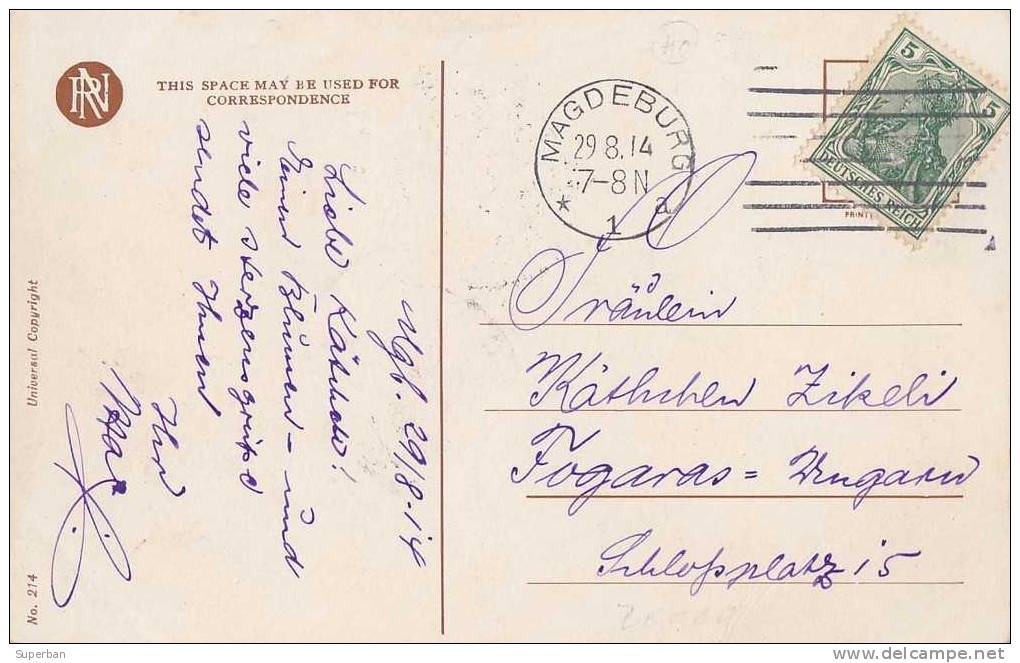 RN
THIS SPACE MAY BE USED FOR
CORRESPONDENCE
Mgb. 29/8.14
Liebe Käthchen!
Blumen- und
viele Herzensgrüße
sendet Ihnen
Ihr
Max
Universal Copyright
No. 214
MAGDEBURG
29.8.14
7-8N
* 1 a
5 5
DEUTSCHES REICH
PRINT
Fräulein
Käthchen Zikeli
Fogaras = Ungarn
Schloßplatz 15
Superban
www.delcampe.net